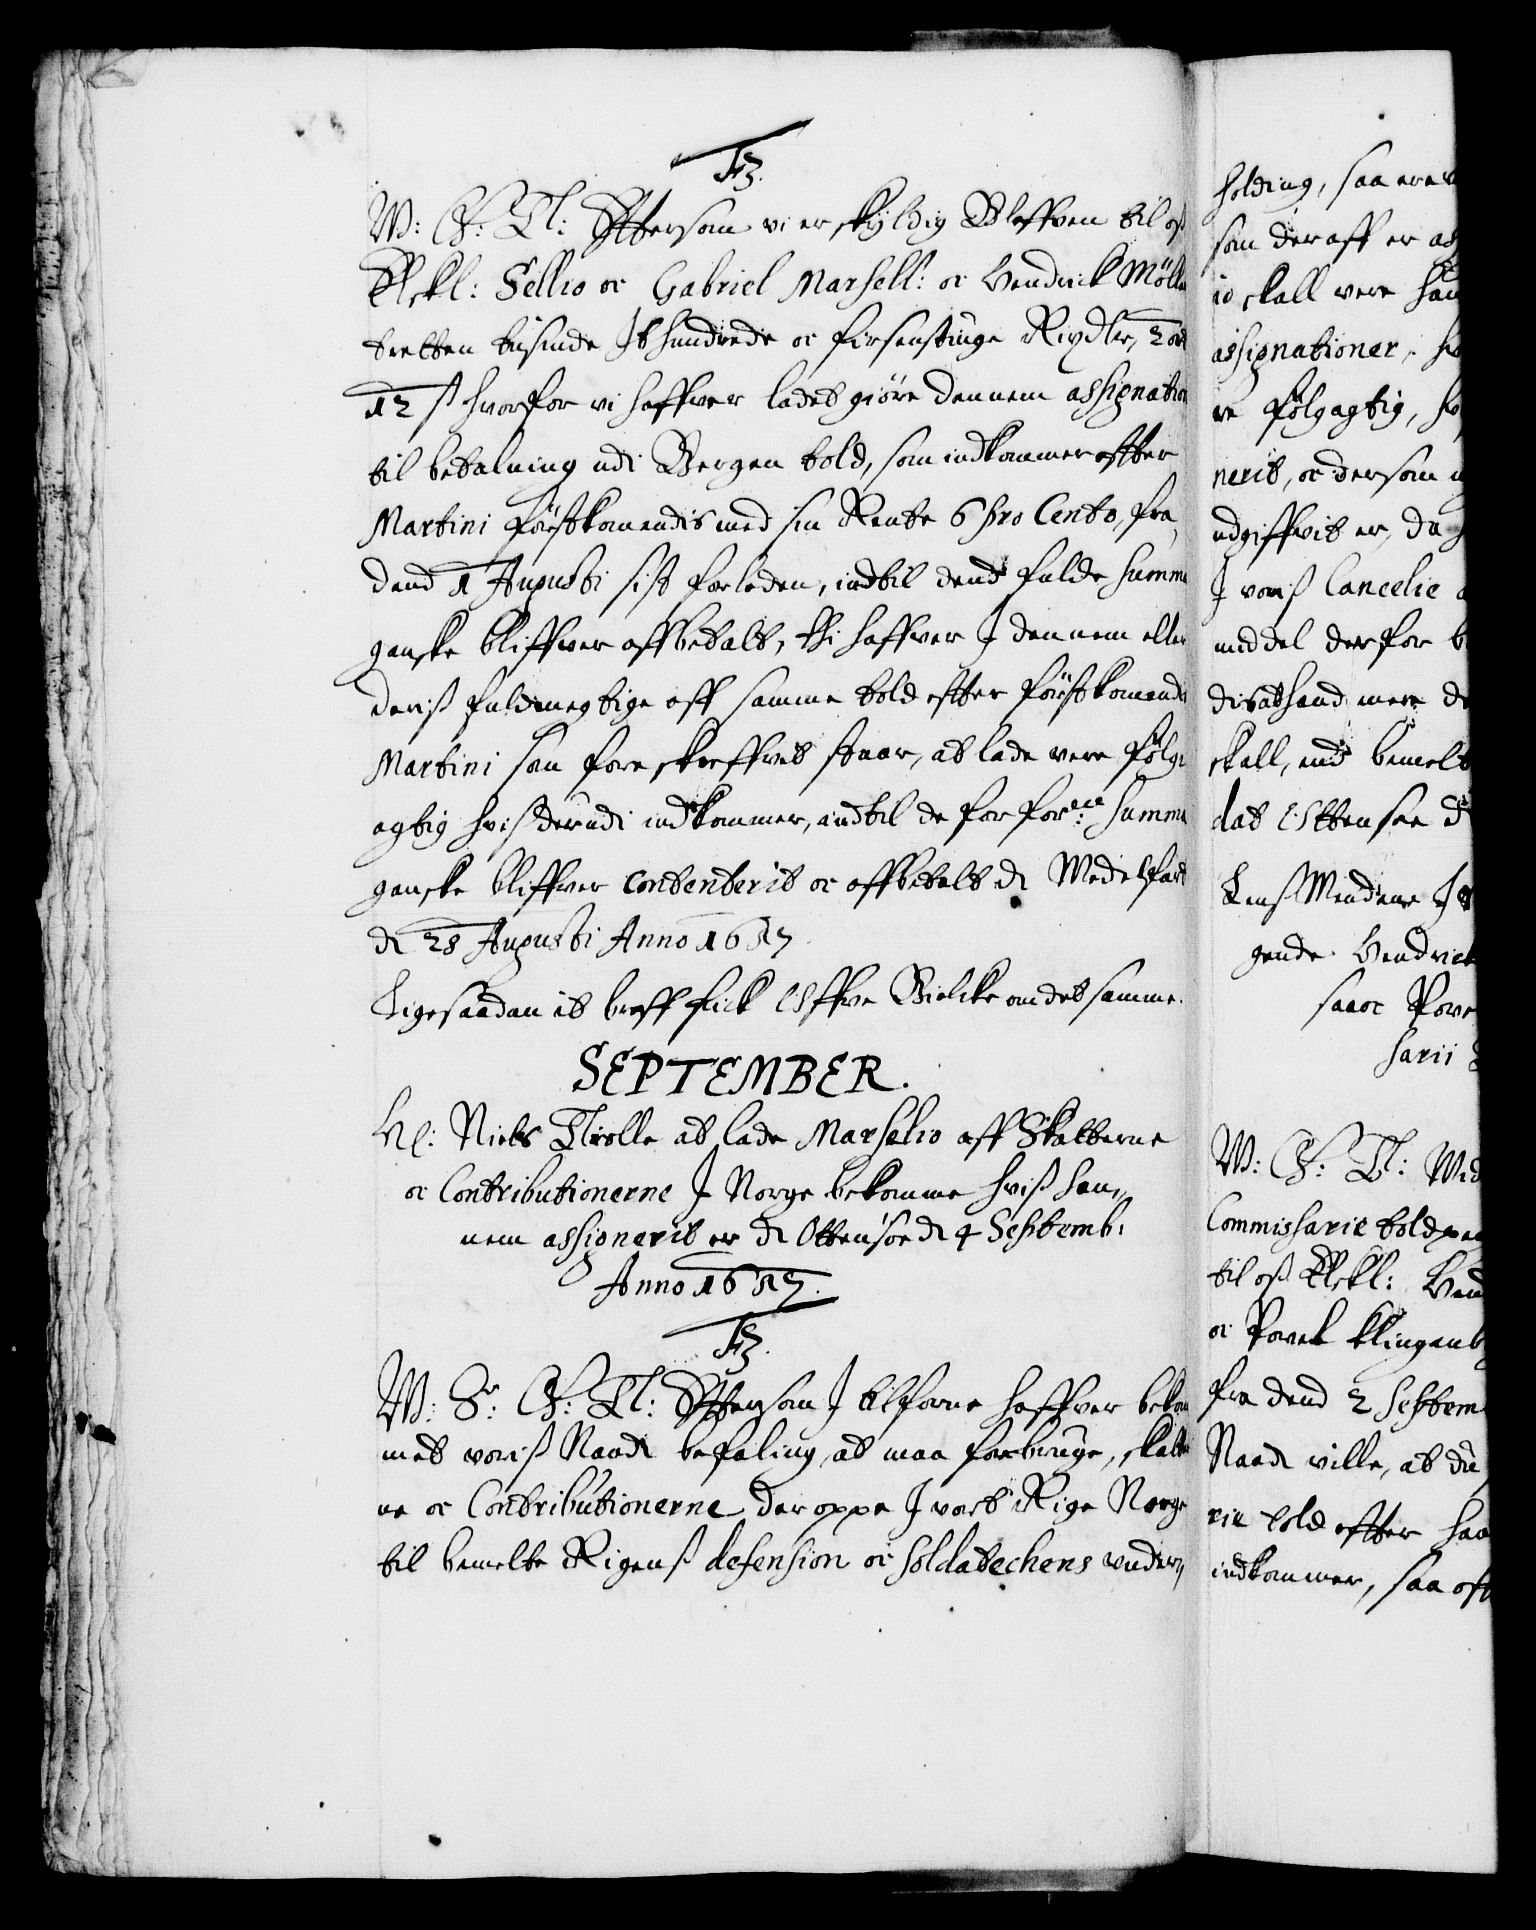 F3.
W: G: T: Efttersom vi er skÿldig Bleffven til oß
Elskl: Sellio oc Gabriel Marsell: oc Hendrick Mölle
tretten tusinde It hundrede oc firsenstiuge Rixdlr, 2 ort
12 ß hvorfor vi haffver ladet giöre dennem assignation
til betalning udi Bergen told, som indkommer efftter
Martini förstkomendis med sin Rente 6 pro Cento, fra
dend 1 Augusti sist forleden, indtil dend fulde summa
ganske bliffver affbetalt, thi haffver I dennem eller
deriß fuldmegtige aff samme told efftter förstkomende
Martini som foreskreffvet staar, at lade vere fölg
agtig hviß derudi indkommer, indtil de for for:ne summa
ganske bliffver contenterit oc affbetalt d Medelfart
d 28 Augusti Anno 1657
Ligesaadan it breff fick Offve Bielcke om det samme.
SEPTEMBER.
H: Niels Trolle at lade Marselio aff Skatterne
oc Contributionerne I Norge bekomme hviß han,
nem assignerit er d Ottensöe d 4 Septemb:
Anno 1657.
F3.
W: S: G: T: Efttersom I tilforne haffver bekom
met voriß Naadi befaling, at maa forbruge, skatter
ne oc Contributionerne der oppe I vort Rige Norge
til bemelte Rigenß defension oc soldatechens under,
holding, saa er
som der aff er as
id skall vere han
assignationer, hv
re fölgagtig, hv
nerit, oc dersom
udgiffvit er, da
I voriß Cancelie
middel derfor
dis at hand mere de
skall, end bemelt
dat Ottensee d
Lens Mendene I
gende Hendrick
saaoc Pove
sarii
W: G: T: Wid
Commissarie told
til oß Elskl: Hend
oc Povel Klingenb
fra dend 2 Septem
Naadi ville, at du
rie told efftter haa
indkommer, saa oft